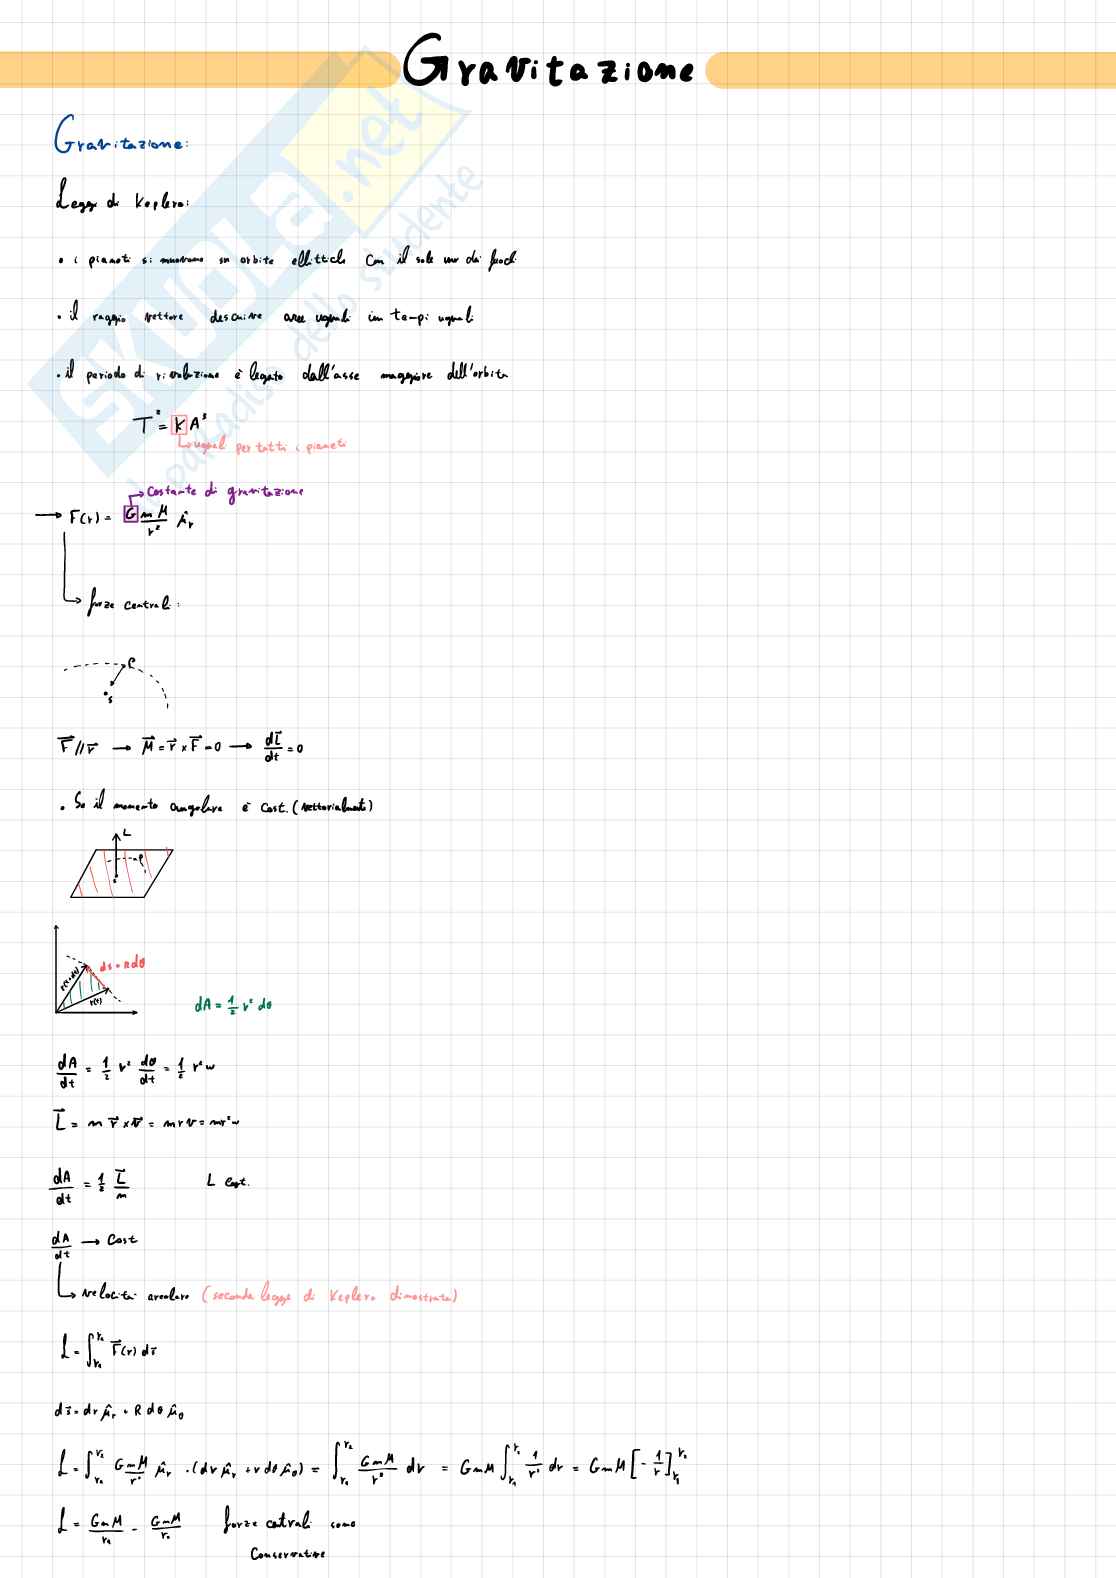 Gravitazione
Gravitazione:
Leggi di Keplero:
• i pianeti si muovono su orbite ellittiche con il sole uno dei fuochi
• il raggio vettore descrive aree uguali in tempi uguali
• il periodo di rivoluzione è legato dall'asse maggiore dell'orbita
T² = K A³
ugual per tutti i pianeti
Costante di gravitazione
→ F(r) = G m M / r² û_r
forze centrali:
P
S
F⃗ // r⃗ → M⃗ = r⃗ × F⃗ = 0 → dL⃗/dt = 0
• Se il momento angolare è cost. (vettorialmente)
L
P
ds = R dθ
r(t+dt)
r(t)
dA = 1/2 r² dθ
dA/dt = 1/2 r² dθ/dt = 1/2 r² w
L⃗ = m r⃗ × v⃗ = m r v = m r² w
dA/dt = 1/2 L⃗/m L cost.
dA/dt → Cost
velocità areolare (seconda legge di Keplero dimostrata)
L = ∫ F⃗(r) ds⃗
ds⃗ = dr û_r + R dθ û_θ
L = ∫ G m M / r² û_r · (dr û_r + r dθ û_θ) = ∫ G m M / r² dr = G m M ∫ 1/r² dr = G m M [- 1/r]
L = G m M / - G m M / forze centrali sono
Conservative
SKUOLA.net
dello studente